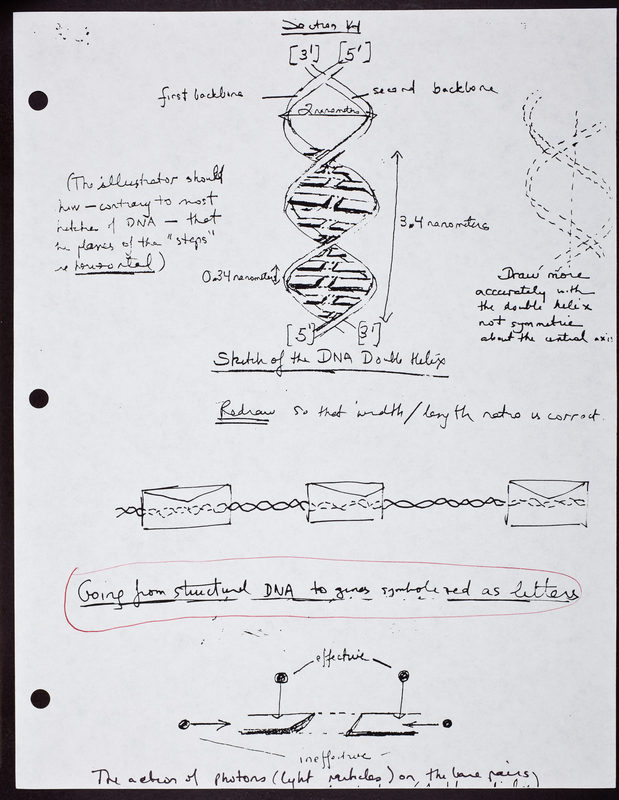 Section K4
[3'] [5']
first backbone
second backbone
2 nanometers
(The illustrator should
how — contrary to most
ketches of DNA — that
he planes of the "steps"
is horizontal)
3.4 nanometers
0.34 nanometers
Draw more
accurately with
the double helix
not symmetric
about the central axis
[5'] [3']
Sketch of the DNA Double Helix
Redraw so that width/length ratio is correct.
Going from structural DNA to genes symbolized as letters
effective
ineffective
The action of photons (light particles) on the base pairs,